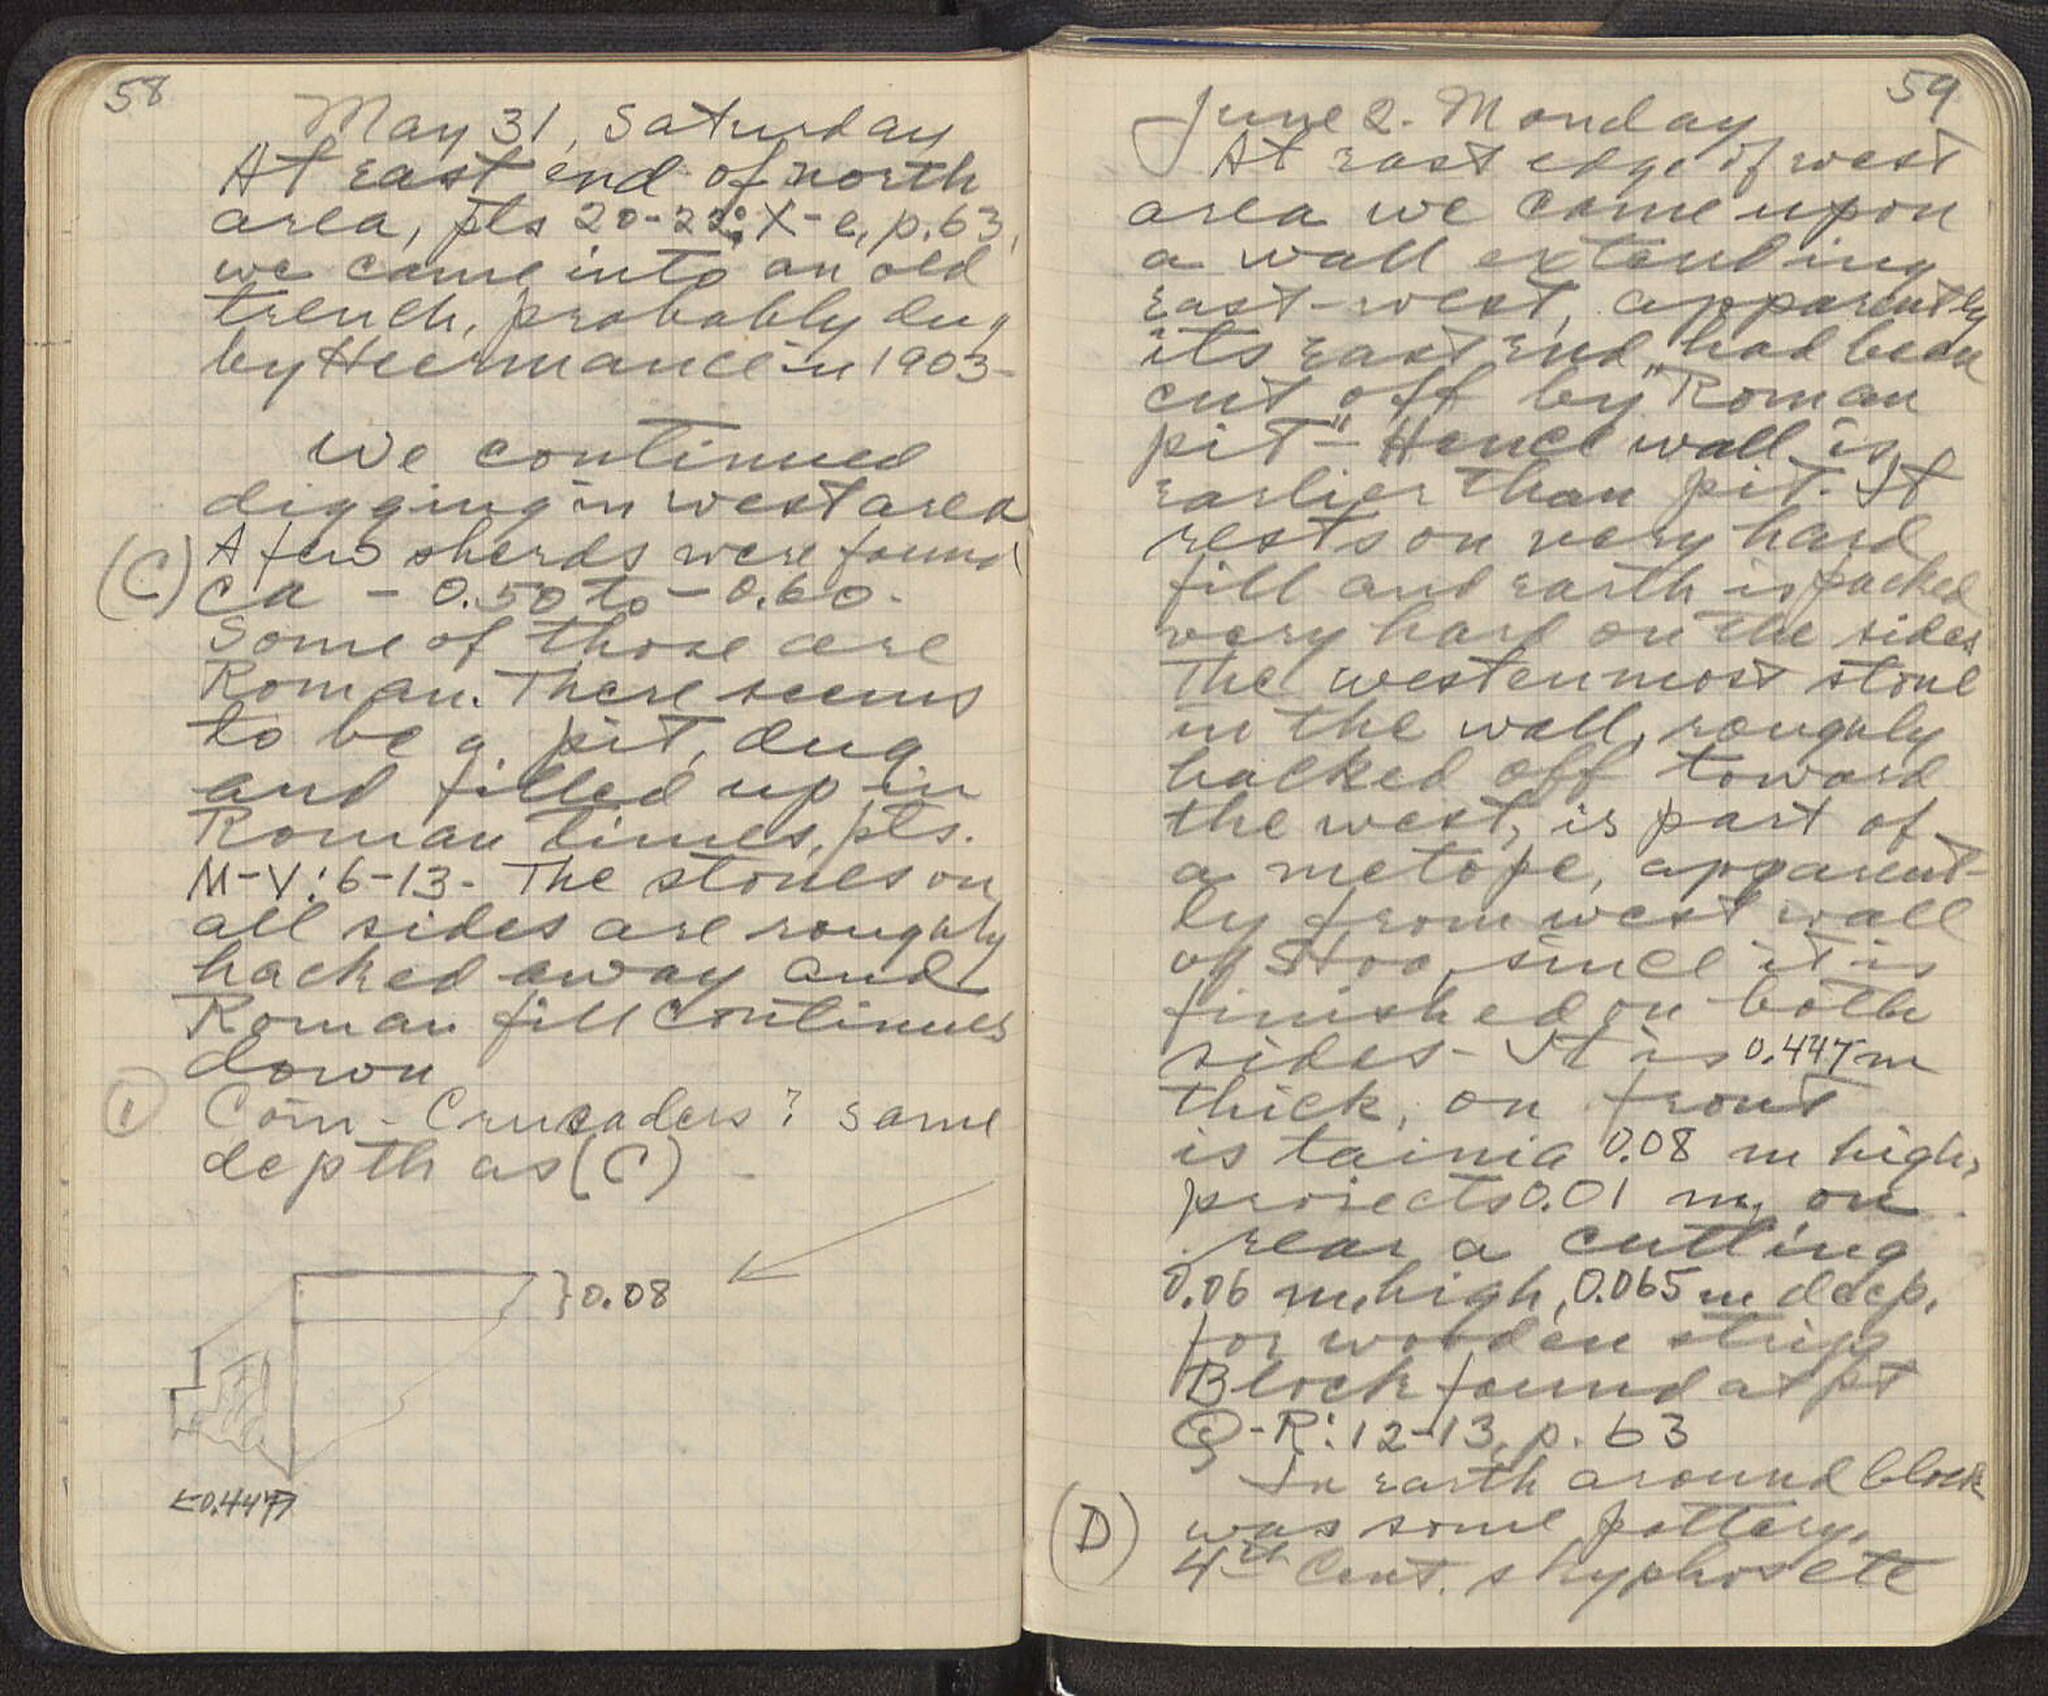 58
May 31, Saturday
At east end of north
area, pts 20-22; X-e, p. 63,
we came into an old
trench, probably dug
by Heermance in 1903-
We continued
digging in west area
(C) A few sherds were found
ca - 0.50 to - 0.60.
Some of those are
Roman. There seems
to be a pit, dug
and filled up in
Roman times, pts.
M-V:6-13- The stones on
all sides are roughly
hacked away and
Roman fill continues
down
1 Coin - Crusaders? same
depth as (C)
}0.08
<0.447>
59
June 2. Monday
At east edge of west
area we came upon
a wall extending
east-west, apparently
its east end had been
cut off by "Roman
pit" - Hence wall is
earlier than pit. It
rests on very hard
fill and earth is packed
very hard on the sides
The westernmost stone
in the wall, roughly
hacked off toward
the west, is part of
a metope, apparent-
ly from west wall
of Stoa, since it is
finished on both
sides - It is 0.447 m
thick, on front
is tainia 0.08 m high,
projects 0.01 m, on
rear a cutting
0.06 m. high, 0.065 m deep,
for wooden strip
Block found at pt
Q-R:12-13, p. 63
In earth around block
(D) was some pottery,
4th Cent. skyphos etc